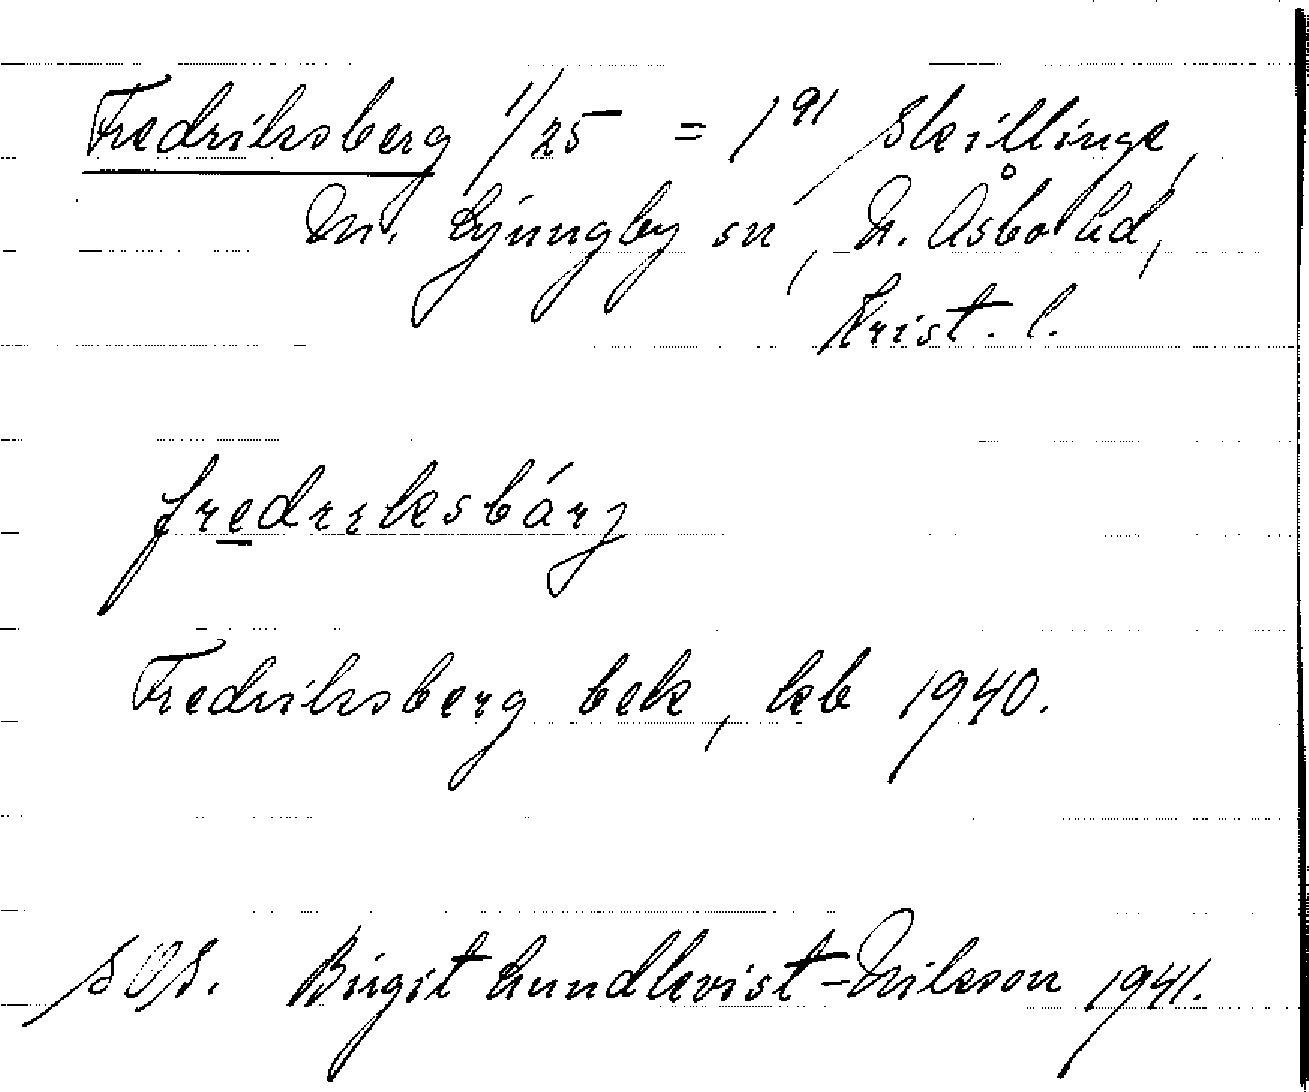 Fredriksberg 1/25 = 1⁹¹ Skillinge,
Ö. Ljungby sn, N. Åsbo hd,
Krist. l.
fredrɪksbárj
Fredriksberg bek, kb 1940.
SOS. Birgit Lundkvist-Nilsson 1941.